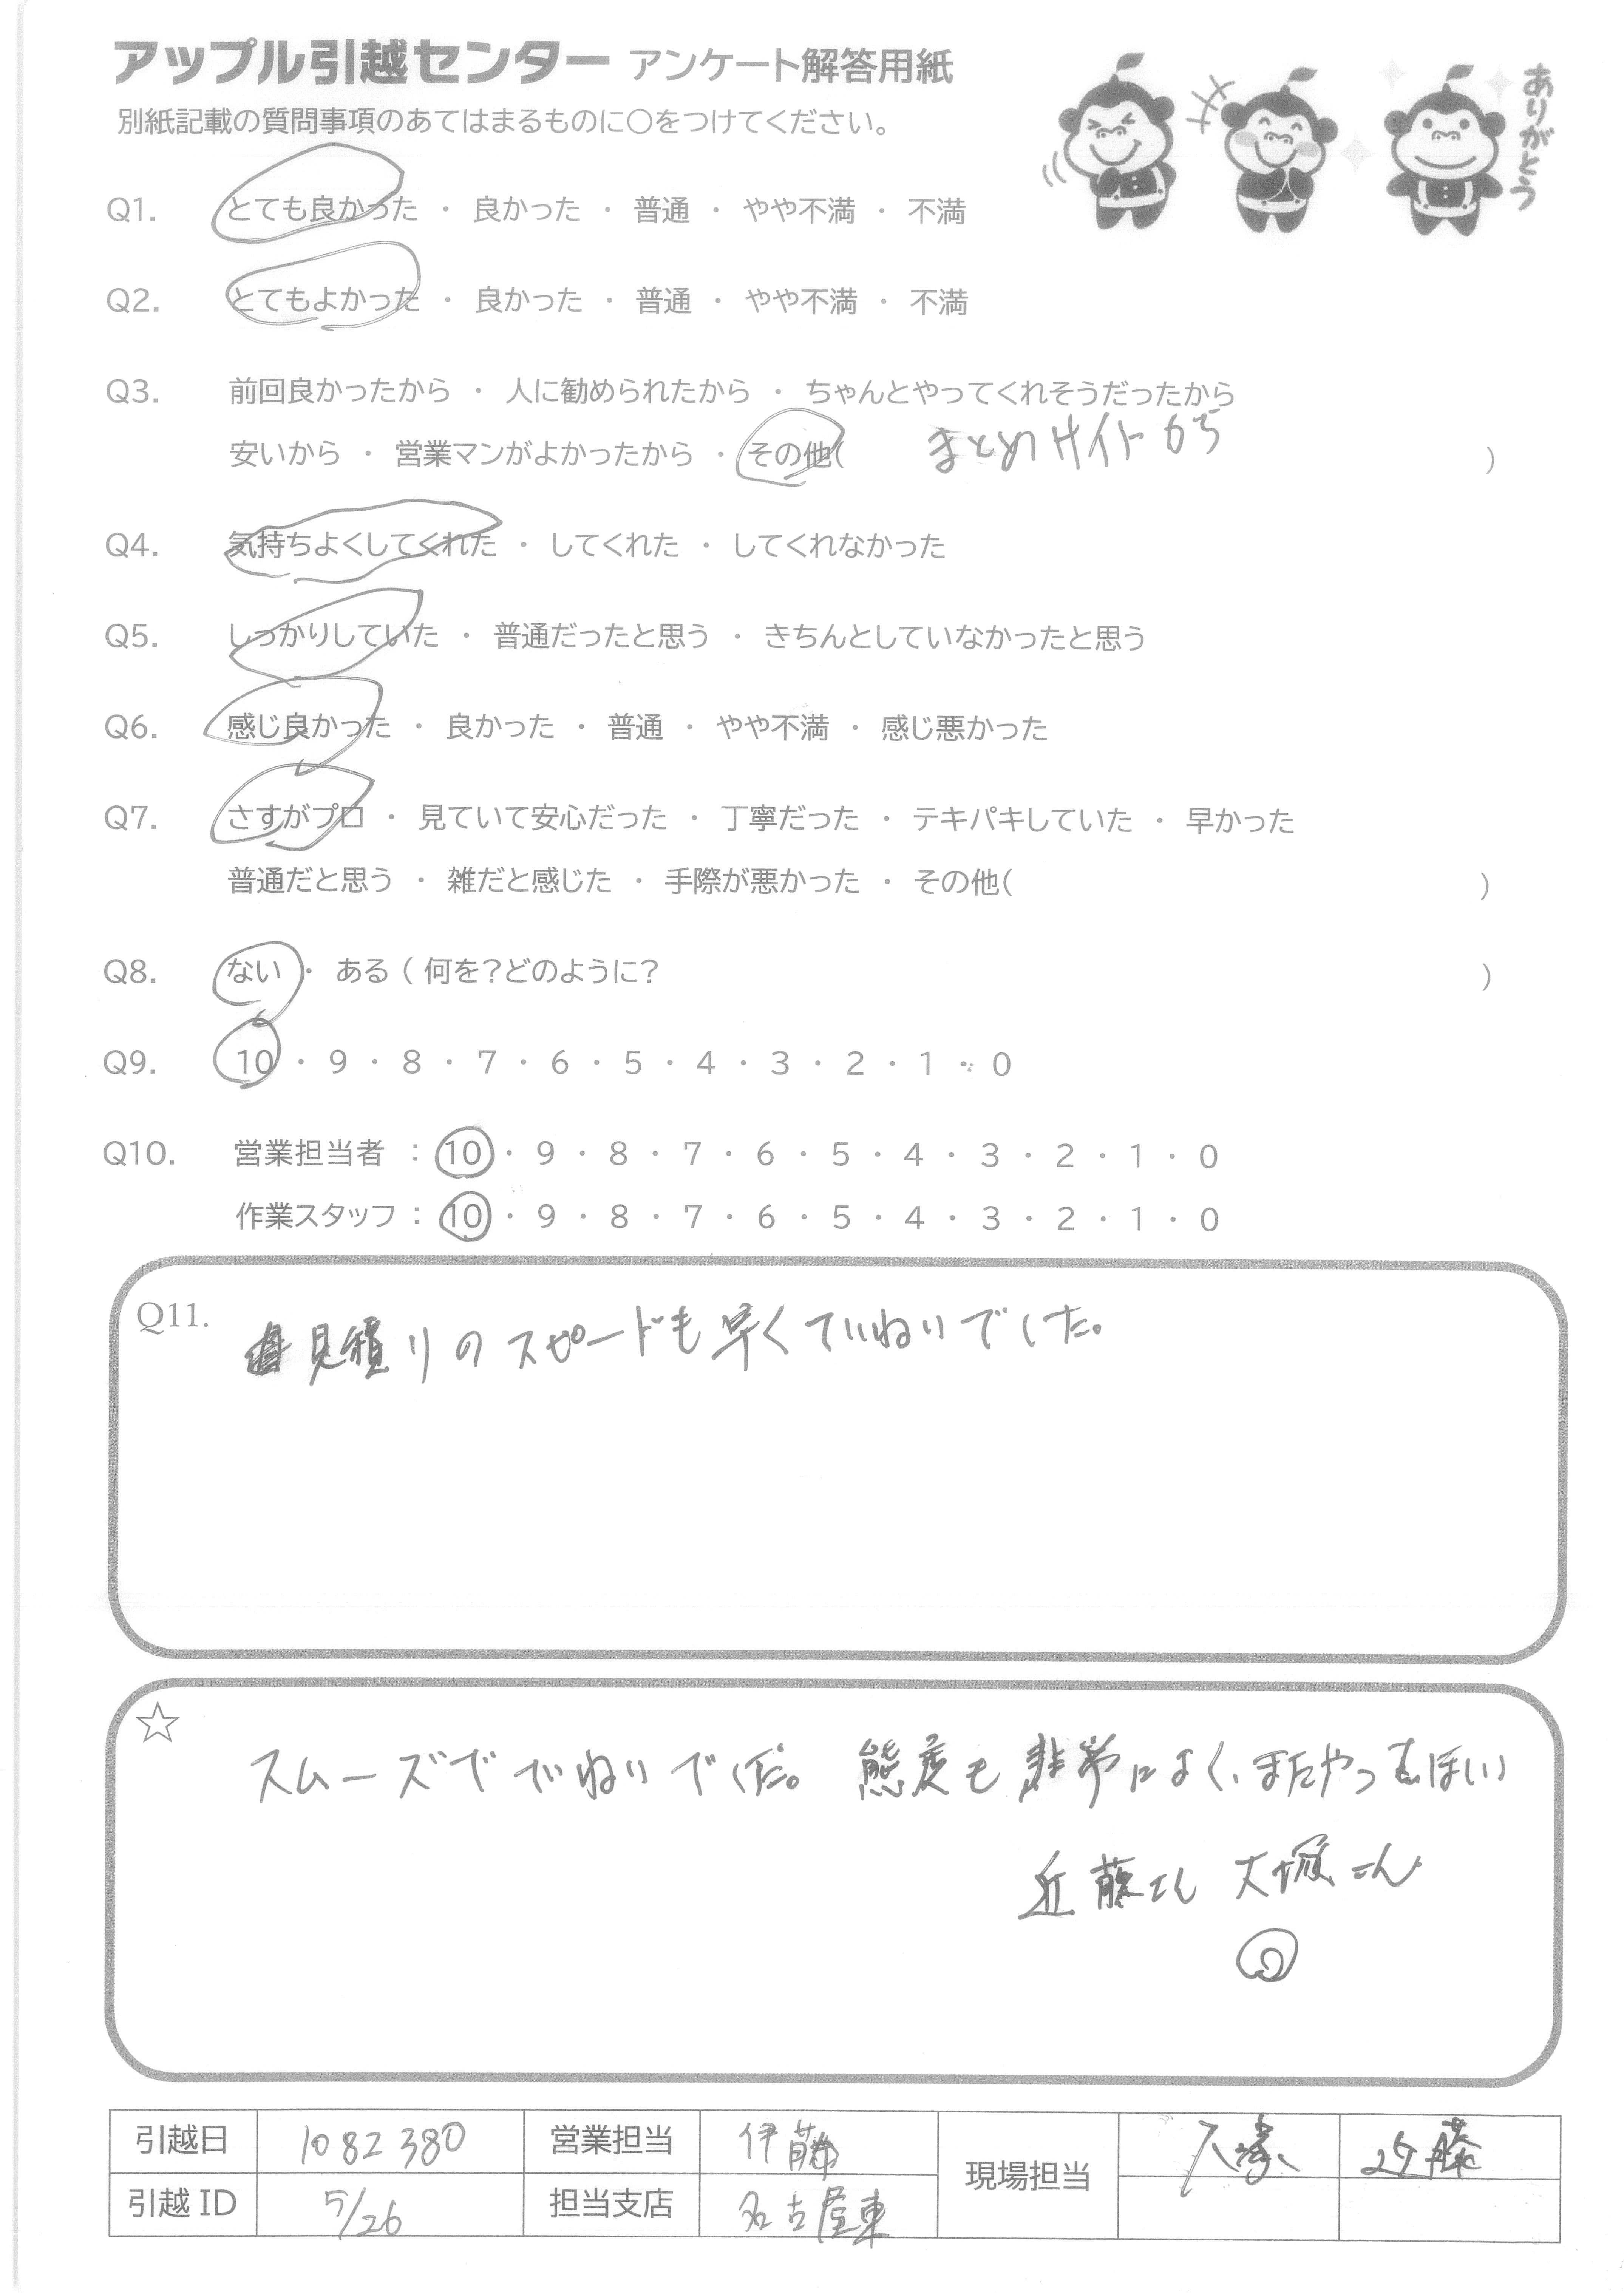 アップル引越センター アンケート解答用紙
別紙記載の質問事項のあてはまるものに○をつけてください。
ありがとう
Q1. とても良かった ・ 良かった ・ 普通 ・ やや不満 ・ 不満
Q2. とてもよかった ・ 良かった ・ 普通 ・ やや不満 ・ 不満
Q3. 前回良かったから ・ 人に勧められたから ・ ちゃんとやってくれそうだったから
安いから ・ 営業マンがよかったから ・ その他( まとめサイトから )
Q4. 気持ちよくしてくれた ・ してくれた ・ してくれなかった
Q5. しっかりしていた ・ 普通だったと思う ・ きちんとしていなかったと思う
Q6. 感じ良かった ・ 良かった ・ 普通 ・ やや不満 ・ 感じ悪かった
Q7. さすがプロ ・ 見ていて安心だった ・ 丁寧だった ・ テキパキしていた ・ 早かった
普通だと思う ・ 雑だと感じた ・ 手際が悪かった ・ その他( )
Q8. ない ・ ある ( 何を?どのように? )
Q9. 10 ・ 9 ・ 8 ・ 7 ・ 6 ・ 5 ・ 4 ・ 3 ・ 2 ・ 1 ・ 0
Q10. 営業担当者 : 10 ・ 9 ・ 8 ・ 7 ・ 6 ・ 5 ・ 4 ・ 3 ・ 2 ・ 1 ・ 0
作業スタッフ : 10 ・ 9 ・ 8 ・ 7 ・ 6 ・ 5 ・ 4 ・ 3 ・ 2 ・ 1 ・ 0
Q11. 見積りのスピードも早くていねいでした。
☆ スムーズで ていねいでした。 態度も非常によく、またやってほしい
近藤さん 大塚さん
引越日 1082380 営業担当 伊藤 現場担当 大塚 近藤
引越ID 5/26 担当支店 名古屋東